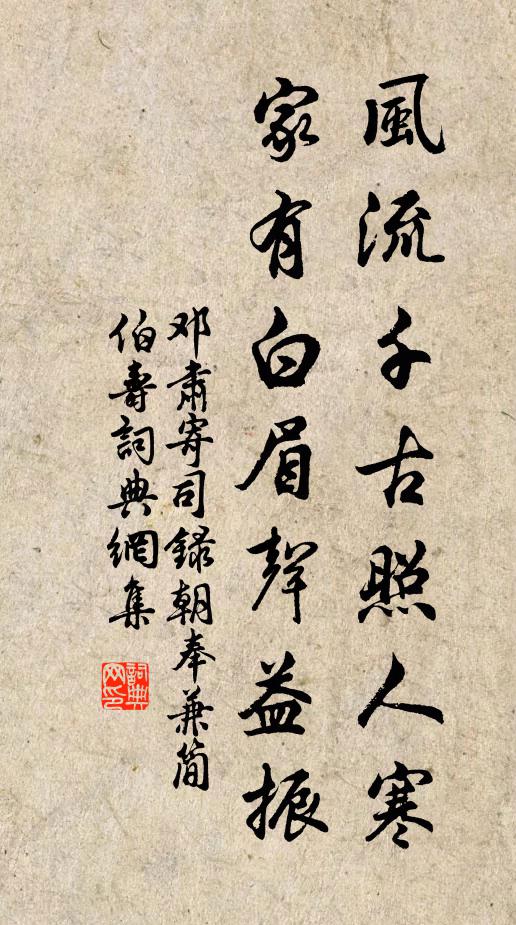 風流千古照人寒
家有白眉聲益振
邓肅寄司録朝奉兼简
伯壽詞典網集
詞典
网印